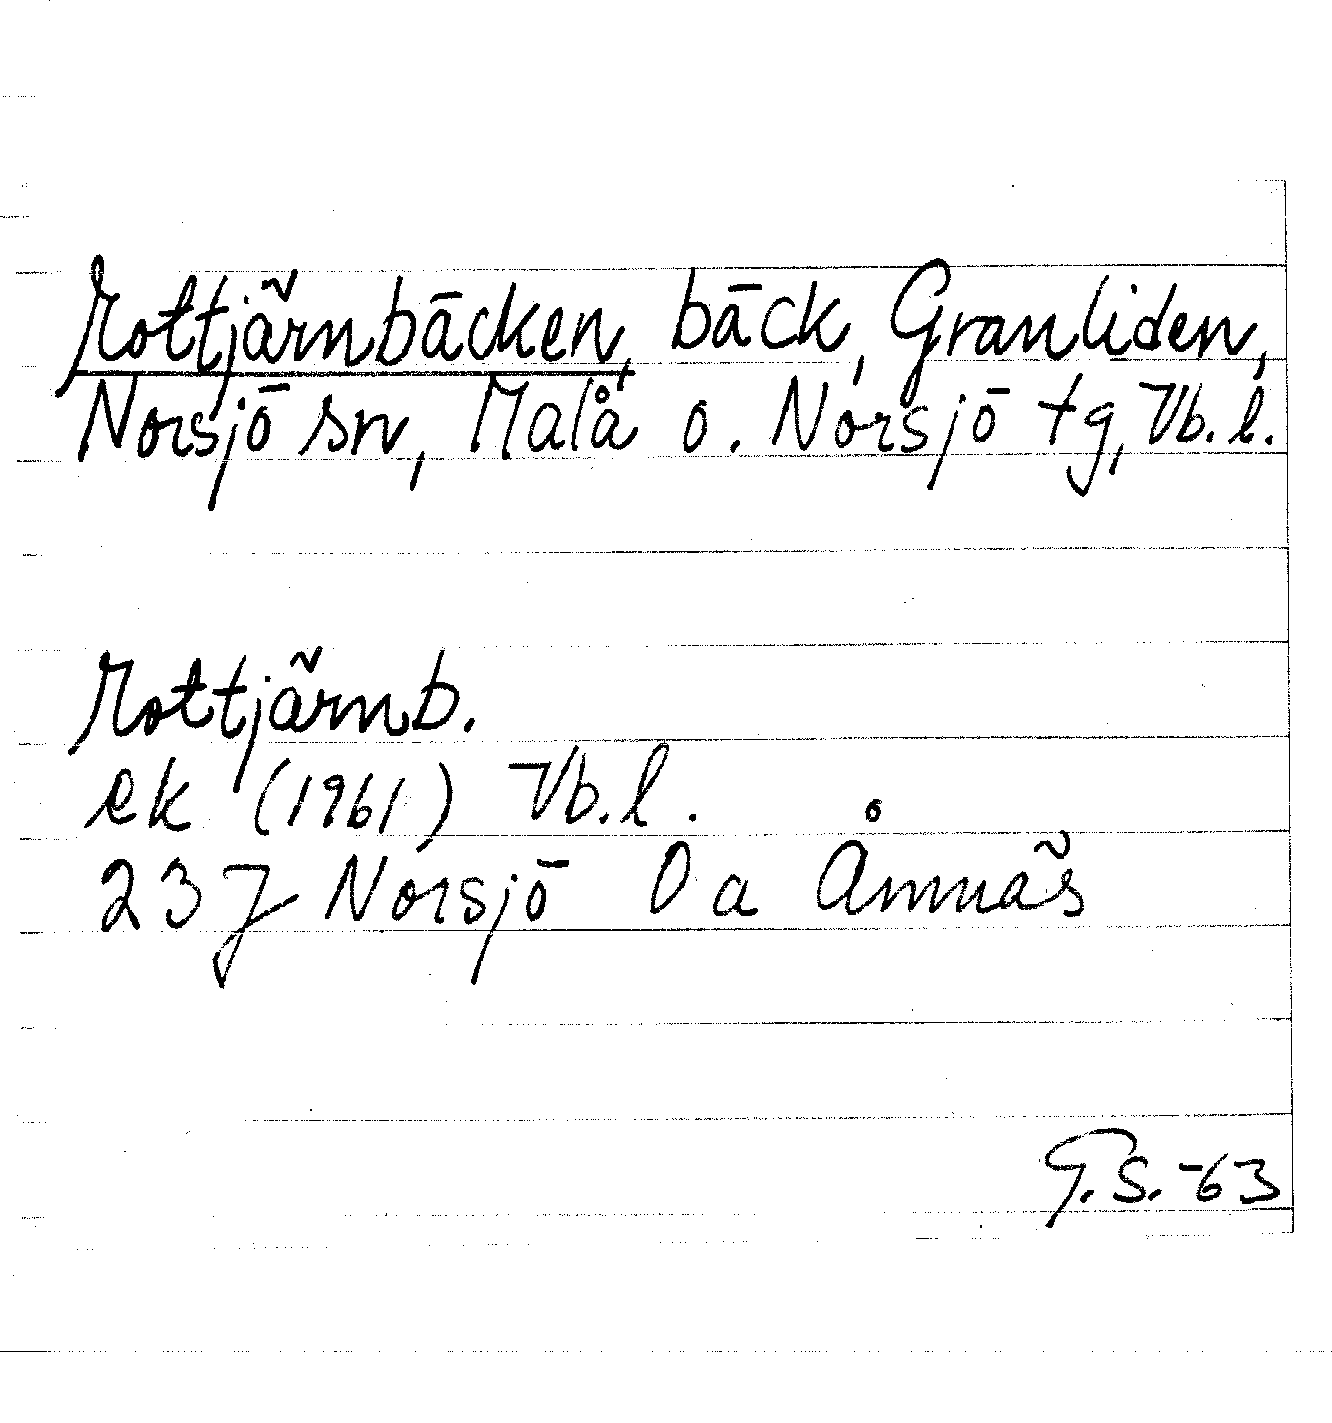 Rottjärnbäcken, bäck, Granliden,
Norsjö sn, Malå o. Norsjö tg, Vb.l.
Rottjärnb.
ek (1961) Vb.l.
23 J Norsjö 0 a Åmnäs
G.S.-63